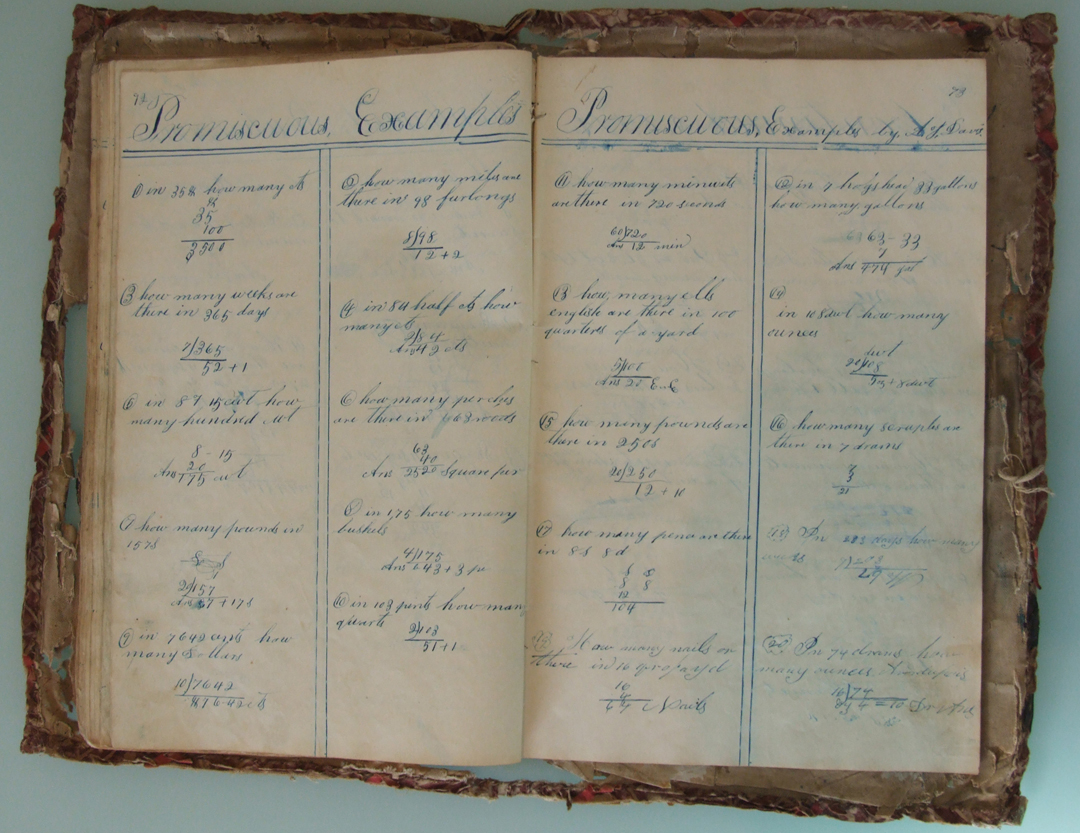 Promiscuous, Examples
① in 35$ how many cts
35
100
3500
③ how many weeks are
there in 365 days
7)365
52+1
⑤ in 8 T 15cwt how
many hundred wt
8-15
20
Ans 175 cwt
⑦ how many pounds in
157s
20)157
Ans 7+17s
⑨ in 7642cents how
many Dollars
10)7642
② how many miles are
there in 98 furlongs
8)98
12+2
④ in 84 half cts how
many cts
2)84
Ans 42 cts
⑥ how many perches
are there in 63 roods
63
40
Ans 2520 Square per
in 175 how many
bushels
4)175
Ans 43+3 pe
⑩ in 103 pints how many
quarts
2)103
51+1
73
Promiscuous, Examples by A. Y. Davis
⑪ how many minuits
are there in 720 seconds
60)720
Ans 12 min
⑬ how, many ells
english are there in 100
quarters of a yard
5)100
Ans 20 E.e
⑮ how meny pounds are
there in 250s
20)250
12+10
⑰ how many pence are there
in 8s 8d
8 8
12
104
How many nails are
there in 16 qr of a yd
16
4
64 Nails
⑫ in 7 hogshead 33 gallons
how many gallons
63-33
7
Ans 474 gal
⑭
in 108dwt how many
ounces
dwt
20)108
5oz+8dwt
⑯ how many scruples are
there in 7 drams
7
3
21
⑱ In 203 days how many
weeks
7)203
29
⑳ In 74 drams how
many ounces
16)74